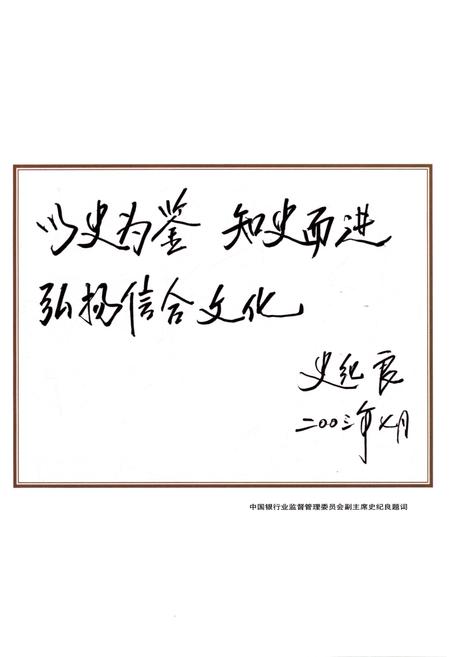 以史为鉴 知史而进
弘扬信合文化
史纪良
二00三年七月
中国银行业监督管理委员会副主席史纪良题词